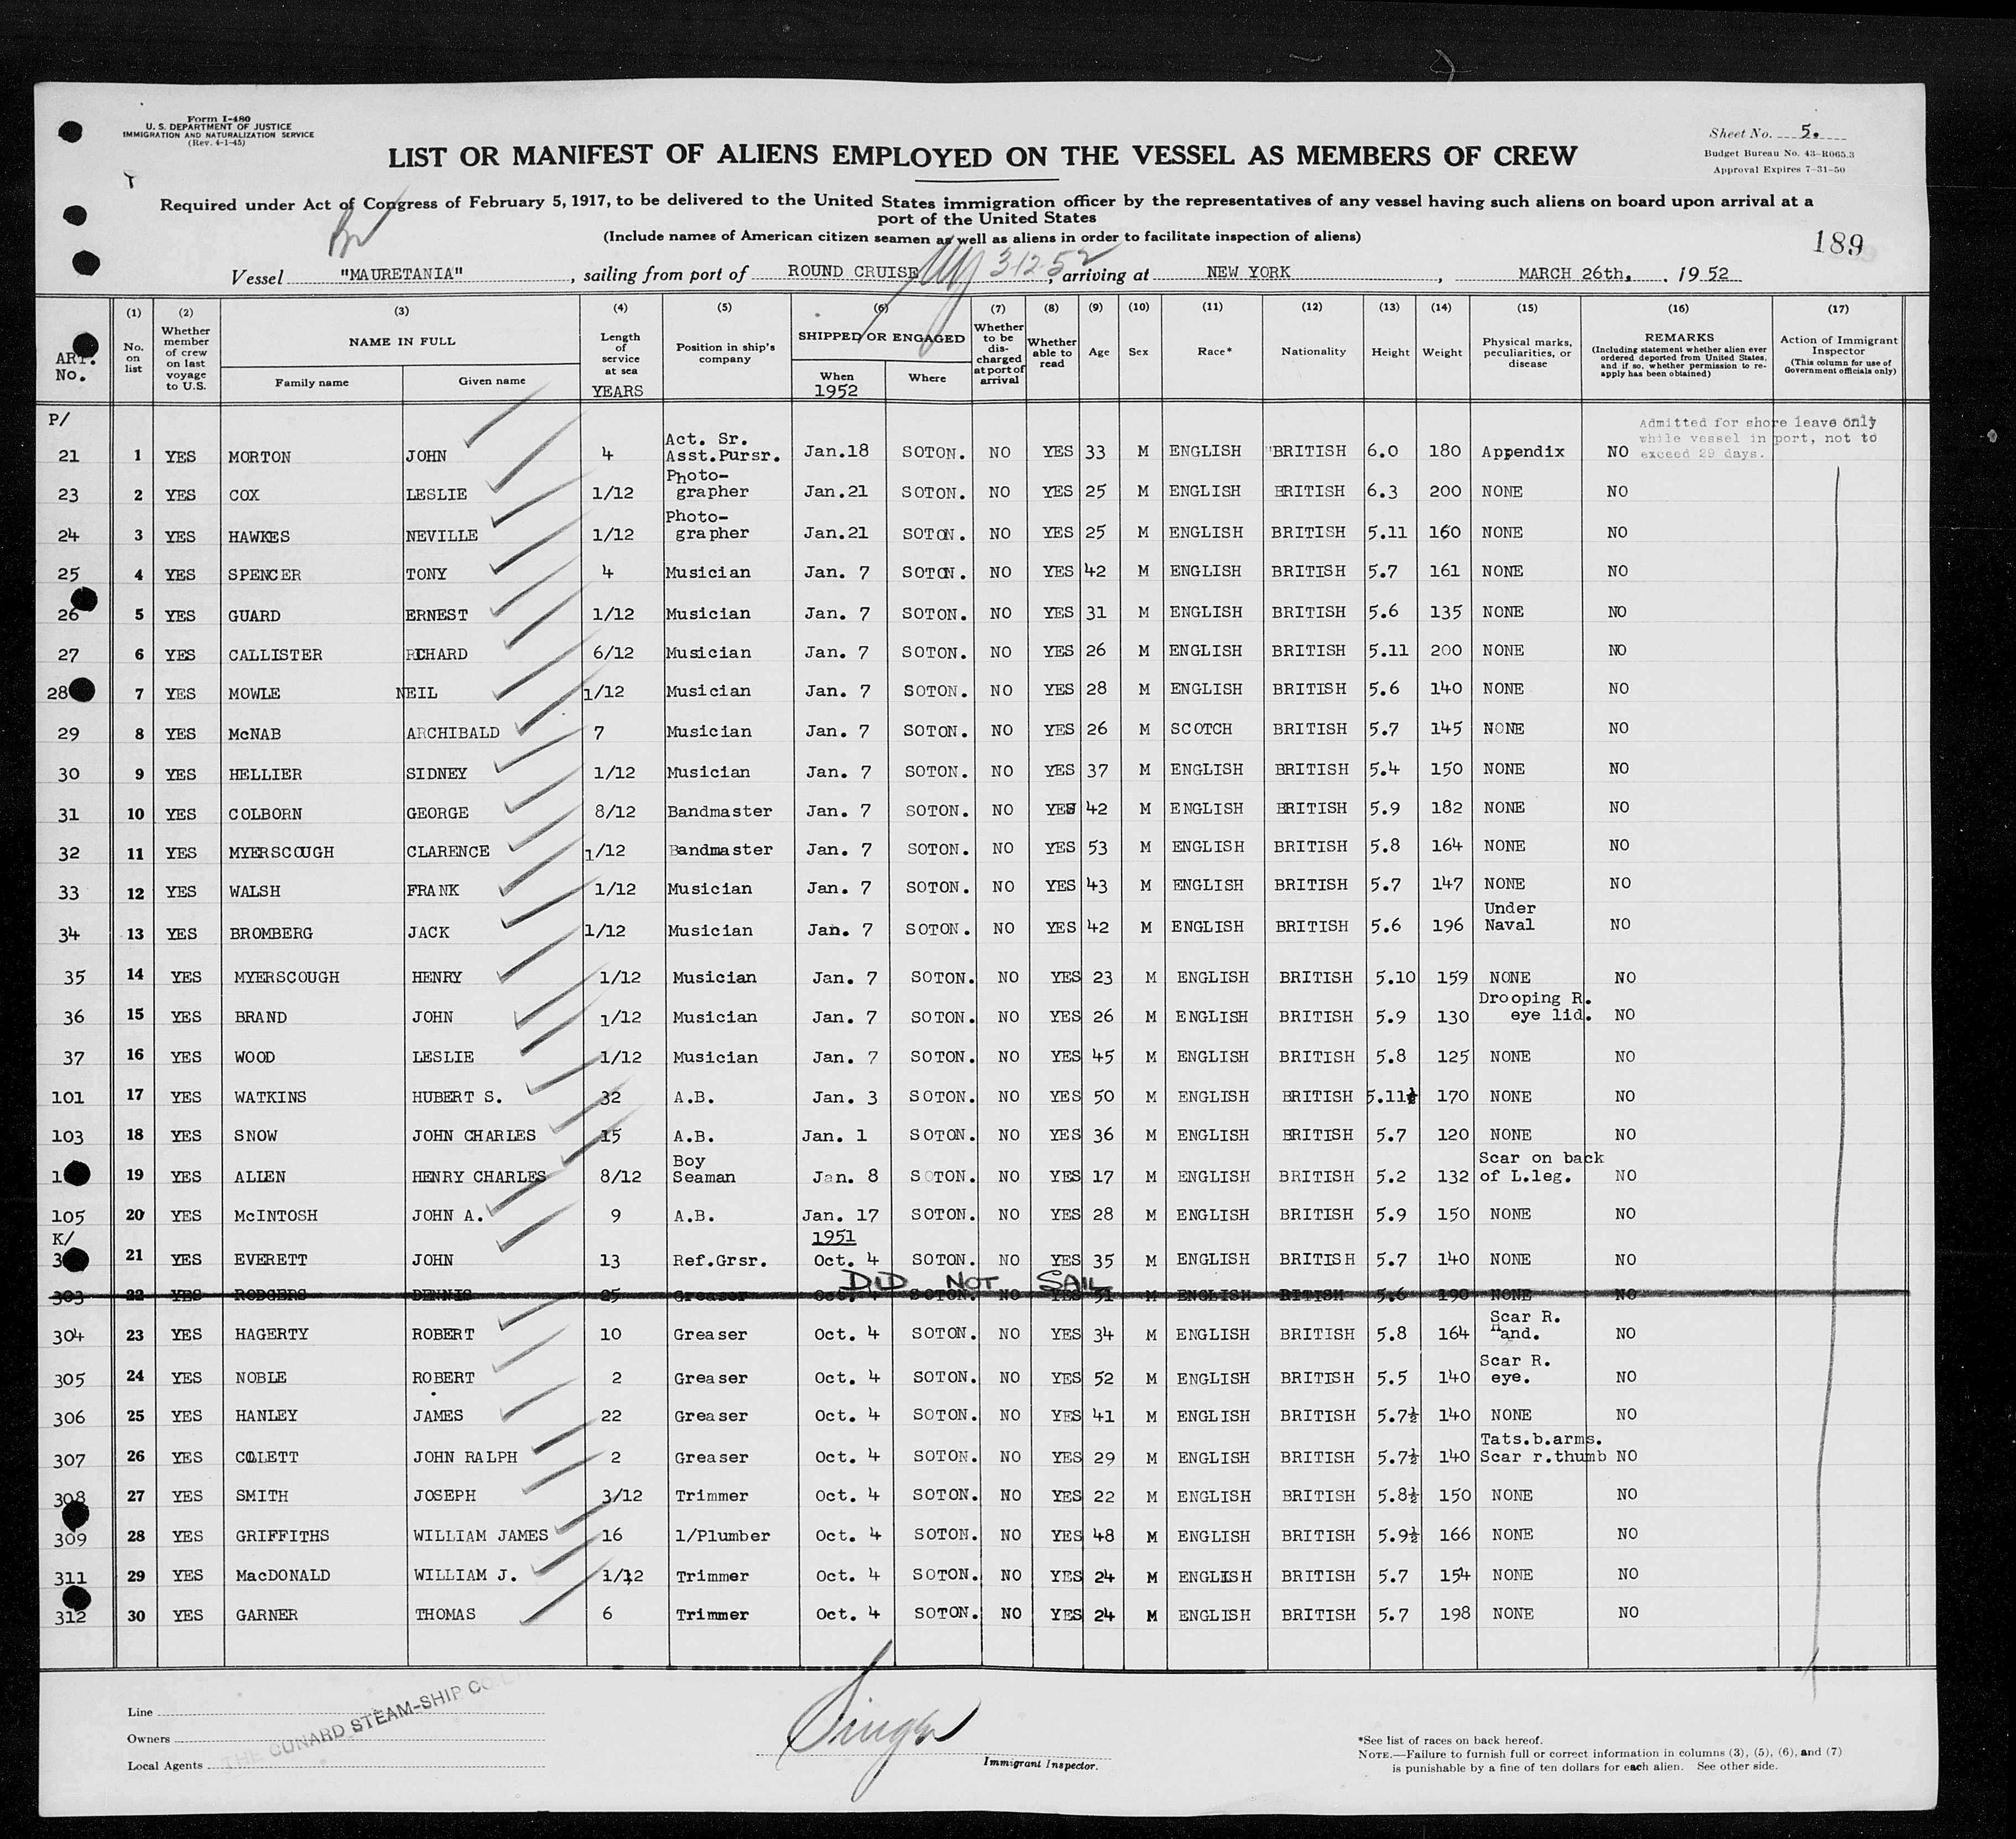 Form I-480
U. S. DEPARTMENT OF JUSTICE
IMMIGRATION AND NATURALIZATION SERVICE
(Rev. 4-1-45)
Sheet No. 5.
Budget Bureau No. 43-R065.3
Approval Expires 7-31-50
LIST OR MANIFEST OF ALIENS EMPLOYED ON THE VESSEL AS MEMBERS OF CREW
Required under Act of Congress of February 5, 1917, to be delivered to the United States immigration officer by the representatives of any vessel having such aliens on board upon arrival at a
port of the United States
(Include names of American citizen seamen as well as aliens in order to facilitate inspection of aliens)
189
Vessel "MAURETANIA", sailing from port of ROUND CRUISE 3-12-52, arriving at NEW YORK, MARCH 26th, 1952
ART. No. (1) No. on list (2) Whether member of crew on last voyage to U.S. (3) NAME IN FULL Family name Given name (4) Length of service at sea YEARS (5) Position in ship's company (6) SHIPPED OR ENGAGED When 1952 Where (7) Whether to be discharged at port of arrival (8) Whether able to read (9) Age (10) Sex (11) Race* (12) Nationality (13) Height (14) Weight (15) Physical marks, peculiarities, or disease (16) REMARKS (Including statement whether alien ever ordered deported from United States, and if so, whether permission to re-apply has been obtained) (17) Action of Immigrant Inspector (This column for use of Government officials only)
P/
Admitted for shore leave only
while vessel in port, not to
exceed 29 days.
21 1 YES MORTON JOHN 4 Act. Sr. Asst.Pursr. Jan.18 SOTON. NO YES 33 M ENGLISH BRITISH 6.0 180 Appendix NO
23 2 YES COX LESLIE 1/12 Photo-grapher Jan.21 SOTON. NO YES 25 M ENGLISH BRITISH 6.3 200 NONE NO
24 3 YES HAWKES NEVILLE 1/12 Photo-grapher Jan.21 SOTON. NO YES 25 M ENGLISH BRITISH 5.11 160 NONE NO
25 4 YES SPENCER TONY 4 Musician Jan. 7 SOTON. NO YES 42 M ENGLISH BRITISH 5.7 161 NONE NO
26 5 YES GUARD ERNEST 1/12 Musician Jan. 7 SOTON. NO YES 31 M ENGLISH BRITISH 5.6 135 NONE NO
27 6 YES CALLISTER RICHARD 6/12 Musician Jan. 7 SOTON. NO YES 26 M ENGLISH BRITISH 5.11 200 NONE NO
28 7 YES MOWLE NEIL 1/12 Musician Jan. 7 SOTON. NO YES 28 M ENGLISH BRITISH 5.6 140 NONE NO
29 8 YES McNAB ARCHIBALD 7 Musician Jan. 7 SOTON. NO YES 26 M SCOTCH BRITISH 5.7 145 NONE NO
30 9 YES HELLIER SIDNEY 1/12 Musician Jan. 7 SOTON. NO YES 37 M ENGLISH BRITISH 5.4 150 NONE NO
31 10 YES COLBORN GEORGE 8/12 Bandmaster Jan. 7 SOTON. NO YES 42 M ENGLISH BRITISH 5.9 182 NONE NO
32 11 YES MYERSCOUGH CLARENCE 1/12 Bandmaster Jan. 7 SOTON. NO YES 53 M ENGLISH BRITISH 5.8 164 NONE NO
33 12 YES WALSH FRANK 1/12 Musician Jan. 7 SOTON. NO YES 43 M ENGLISH BRITISH 5.7 147 NONE NO
34 13 YES BROMBERG JACK 1/12 Musician Jan. 7 SOTON. NO YES 42 M ENGLISH BRITISH 5.6 196 Under Naval NO
35 14 YES MYERSCOUGH HENRY 1/12 Musician Jan. 7 SOTON. NO YES 23 M ENGLISH BRITISH 5.10 159 NONE NO
36 15 YES BRAND JOHN 1/12 Musician Jan. 7 SOTON. NO YES 26 M ENGLISH BRITISH 5.9 130 Drooping R. eye lid. NO
37 16 YES WOOD LESLIE 1/12 Musician Jan. 7 SOTON. NO YES 45 M ENGLISH BRITISH 5.8 125 NONE NO
101 17 YES WATKINS HUBERT S. 32 A.B. Jan. 3 SOTON. NO YES 50 M ENGLISH BRITISH 5.11½ 170 NONE NO
103 18 YES SNOW JOHN CHARLES 15 A.B. Jan. 1 SOTON. NO YES 36 M ENGLISH BRITISH 5.7 120 NONE NO
19 YES ALLEN HENRY CHARLES 8/12 Boy Seaman Jan. 8 SOTON. NO YES 17 M ENGLISH BRITISH 5.2 132 Scar on back of L.leg. NO
105 20 YES McINTOSH JOHN A. 9 A.B. Jan. 17 SOTON. NO YES 28 M ENGLISH BRITISH 5.9 150 NONE NO
K/ 1951
21 YES EVERETT JOHN 13 Ref.Grsr. Oct. 4 SOTON. NO YES 35 M ENGLISH BRITISH 5.7 140 NONE NO
DID NOT SAIL
303 22 YES RODGERS DENNIS 25 Greaser Oct. 4 SOTON. NO YES 51 M ENGLISH BRITISH 5.6 190 NONE NO
304 23 YES HAGERTY ROBERT 10 Greaser Oct. 4 SOTON. NO YES 34 M ENGLISH BRITISH 5.8 164 Scar R. Hand. NO
305 24 YES NOBLE ROBERT 2 Greaser Oct. 4 SOTON. NO YES 52 M ENGLISH BRITISH 5.5 140 Scar R. eye. NO
306 25 YES HANLEY JAMES 22 Greaser Oct. 4 SOTON. NO YES 41 M ENGLISH BRITISH 5.7½ 140 NONE NO
307 26 YES COLLETT JOHN RALPH 2 Greaser Oct. 4 SOTON. NO YES 29 M ENGLISH BRITISH 5.7½ 140 Tats.b.arms. Scar r.thumb NO
308 27 YES SMITH JOSEPH 3/12 Trimmer Oct. 4 SOTON. NO YES 22 M ENGLISH BRITISH 5.8½ 150 NONE NO
309 28 YES GRIFFITHS WILLIAM JAMES 16 1/Plumber Oct. 4 SOTON. NO YES 48 M ENGLISH BRITISH 5.9½ 166 NONE NO
311 29 YES MacDONALD WILLIAM J. 1/12 Trimmer Oct. 4 SOTON. NO YES 24 M ENGLISH BRITISH 5.7 154 NONE NO
312 30 YES GARNER THOMAS 6 Trimmer Oct. 4 SOTON. NO YES 24 M ENGLISH BRITISH 5.7 198 NONE NO
Line
Owners
Local Agents
THE CUNARD STEAM-SHIP CO
Immigrant Inspector.
*See list of races on back hereof.
NOTE.—Failure to furnish full or correct information in columns (3), (5), (6), and (7)
is punishable by a fine of ten dollars for each alien. See other side.